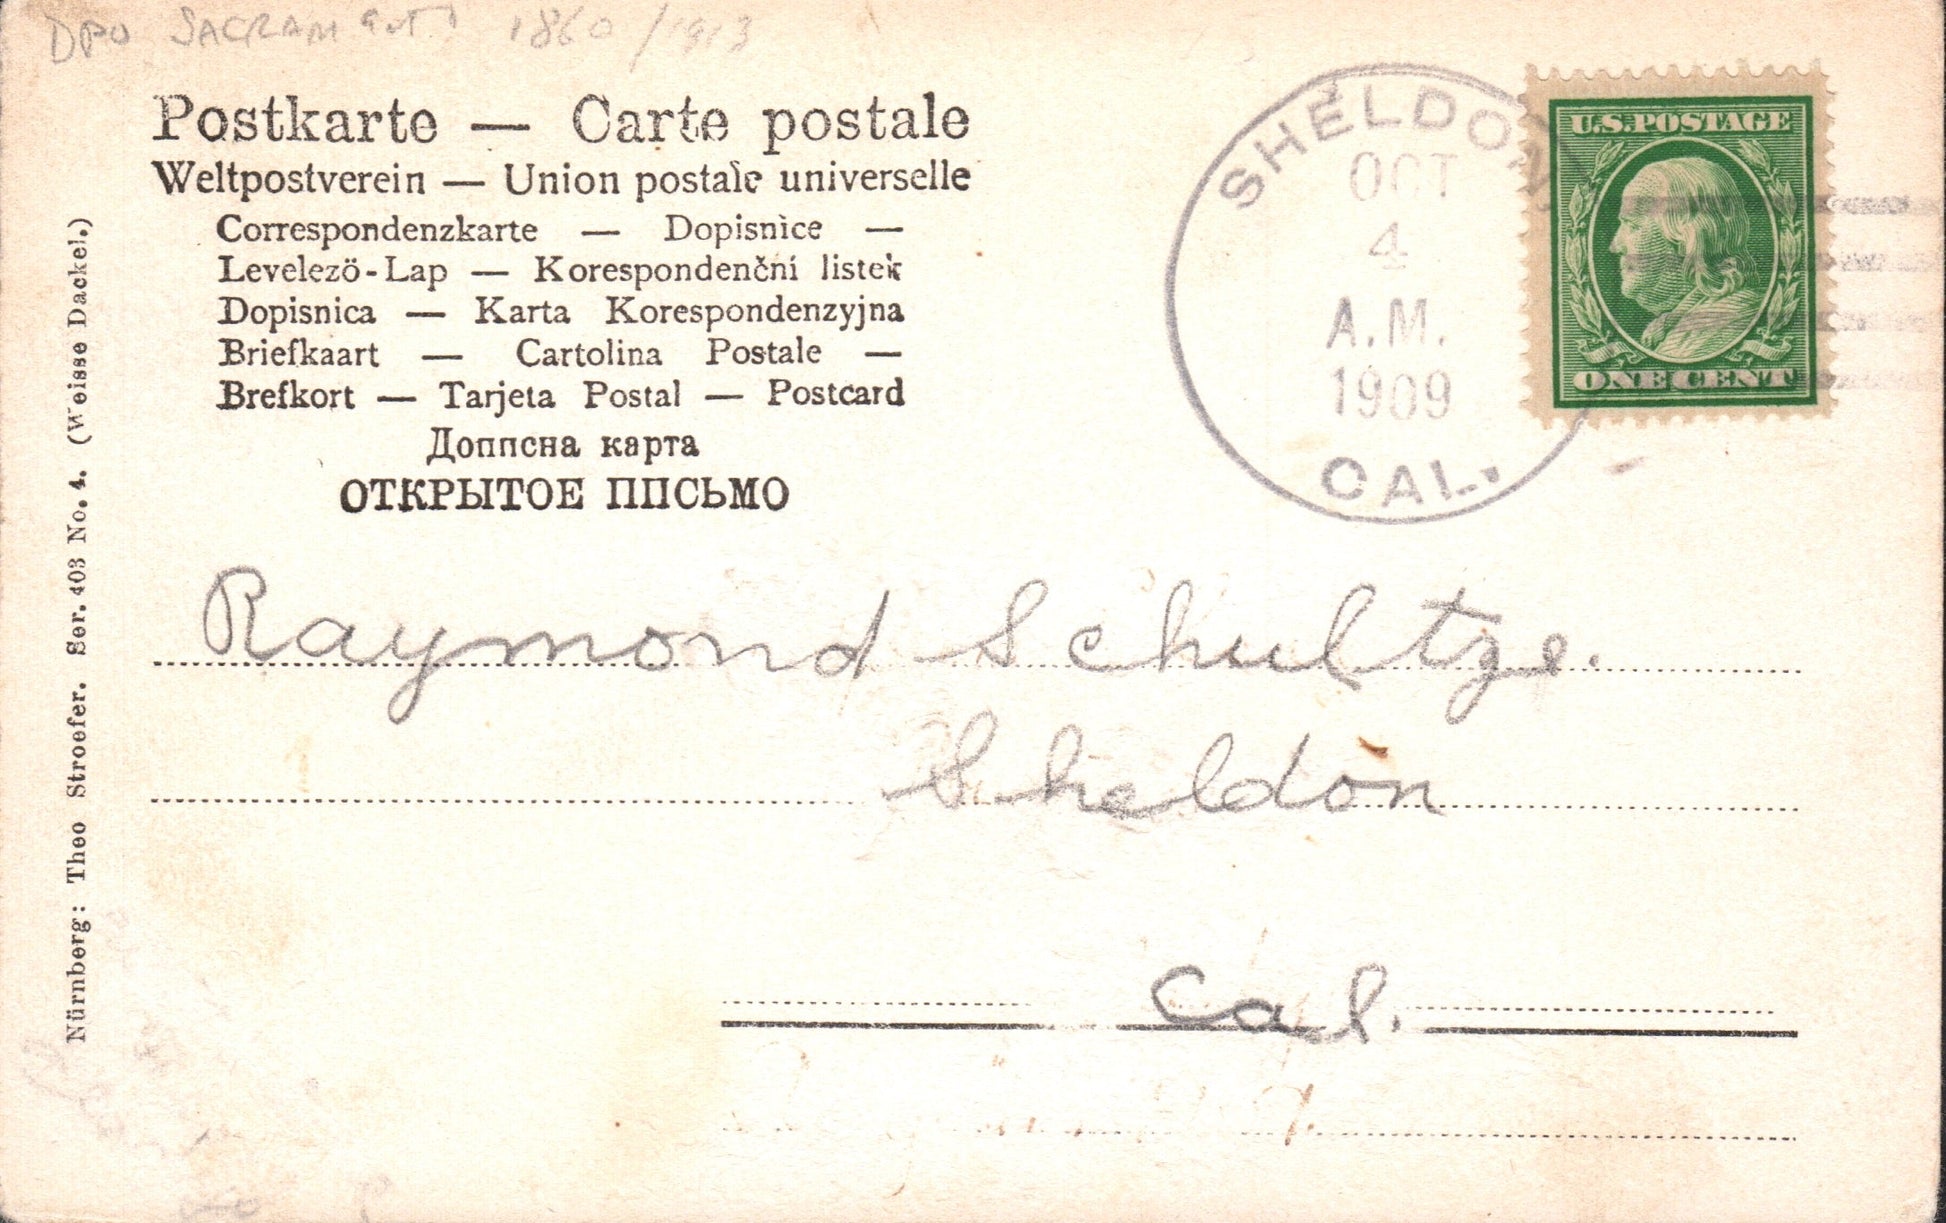 DPO SACRAMENTO 1860/1913
Postkarte — Carte postale
Weltpostverein — Union postale universelle
Correspondenzkarte — Dopisnice —
Levelezö-Lap — Korespondenční listek
Dopisnica — Karta Korespondenzyjna
Briefkaart — Cartolina Postale —
Brefkort — Tarjeta Postal — Postcard
Дописна карта
ОТКРЫТОЕ ПИСЬМО
SHELDON
OCT
4
A.M.
1909
CAL.
U.S.POSTAGE
ONE CENT
Raymond Schultze.
Sheldon
Cal.
Nürnberg: Theo Stroefer. Ser. 403 No. 4. (Weisse Dackel.)